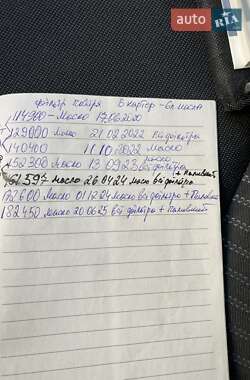 AUTO RIA
фільтр коміря В картор - 6л масла
114900 - Масло 17.06.2020
129000 Масло 21.02.2022 всі фільтра
140400 11.10.2022 масло
152300 Масло 13 09 23 масло всі фільтра
161.597 масло 26.04.24 масло всі фільтра + Паливний
172600 Масло 01.12.24 масло всі фільтра + Паливний
182450 масло 20.06.25 всі фільтра + Паливний